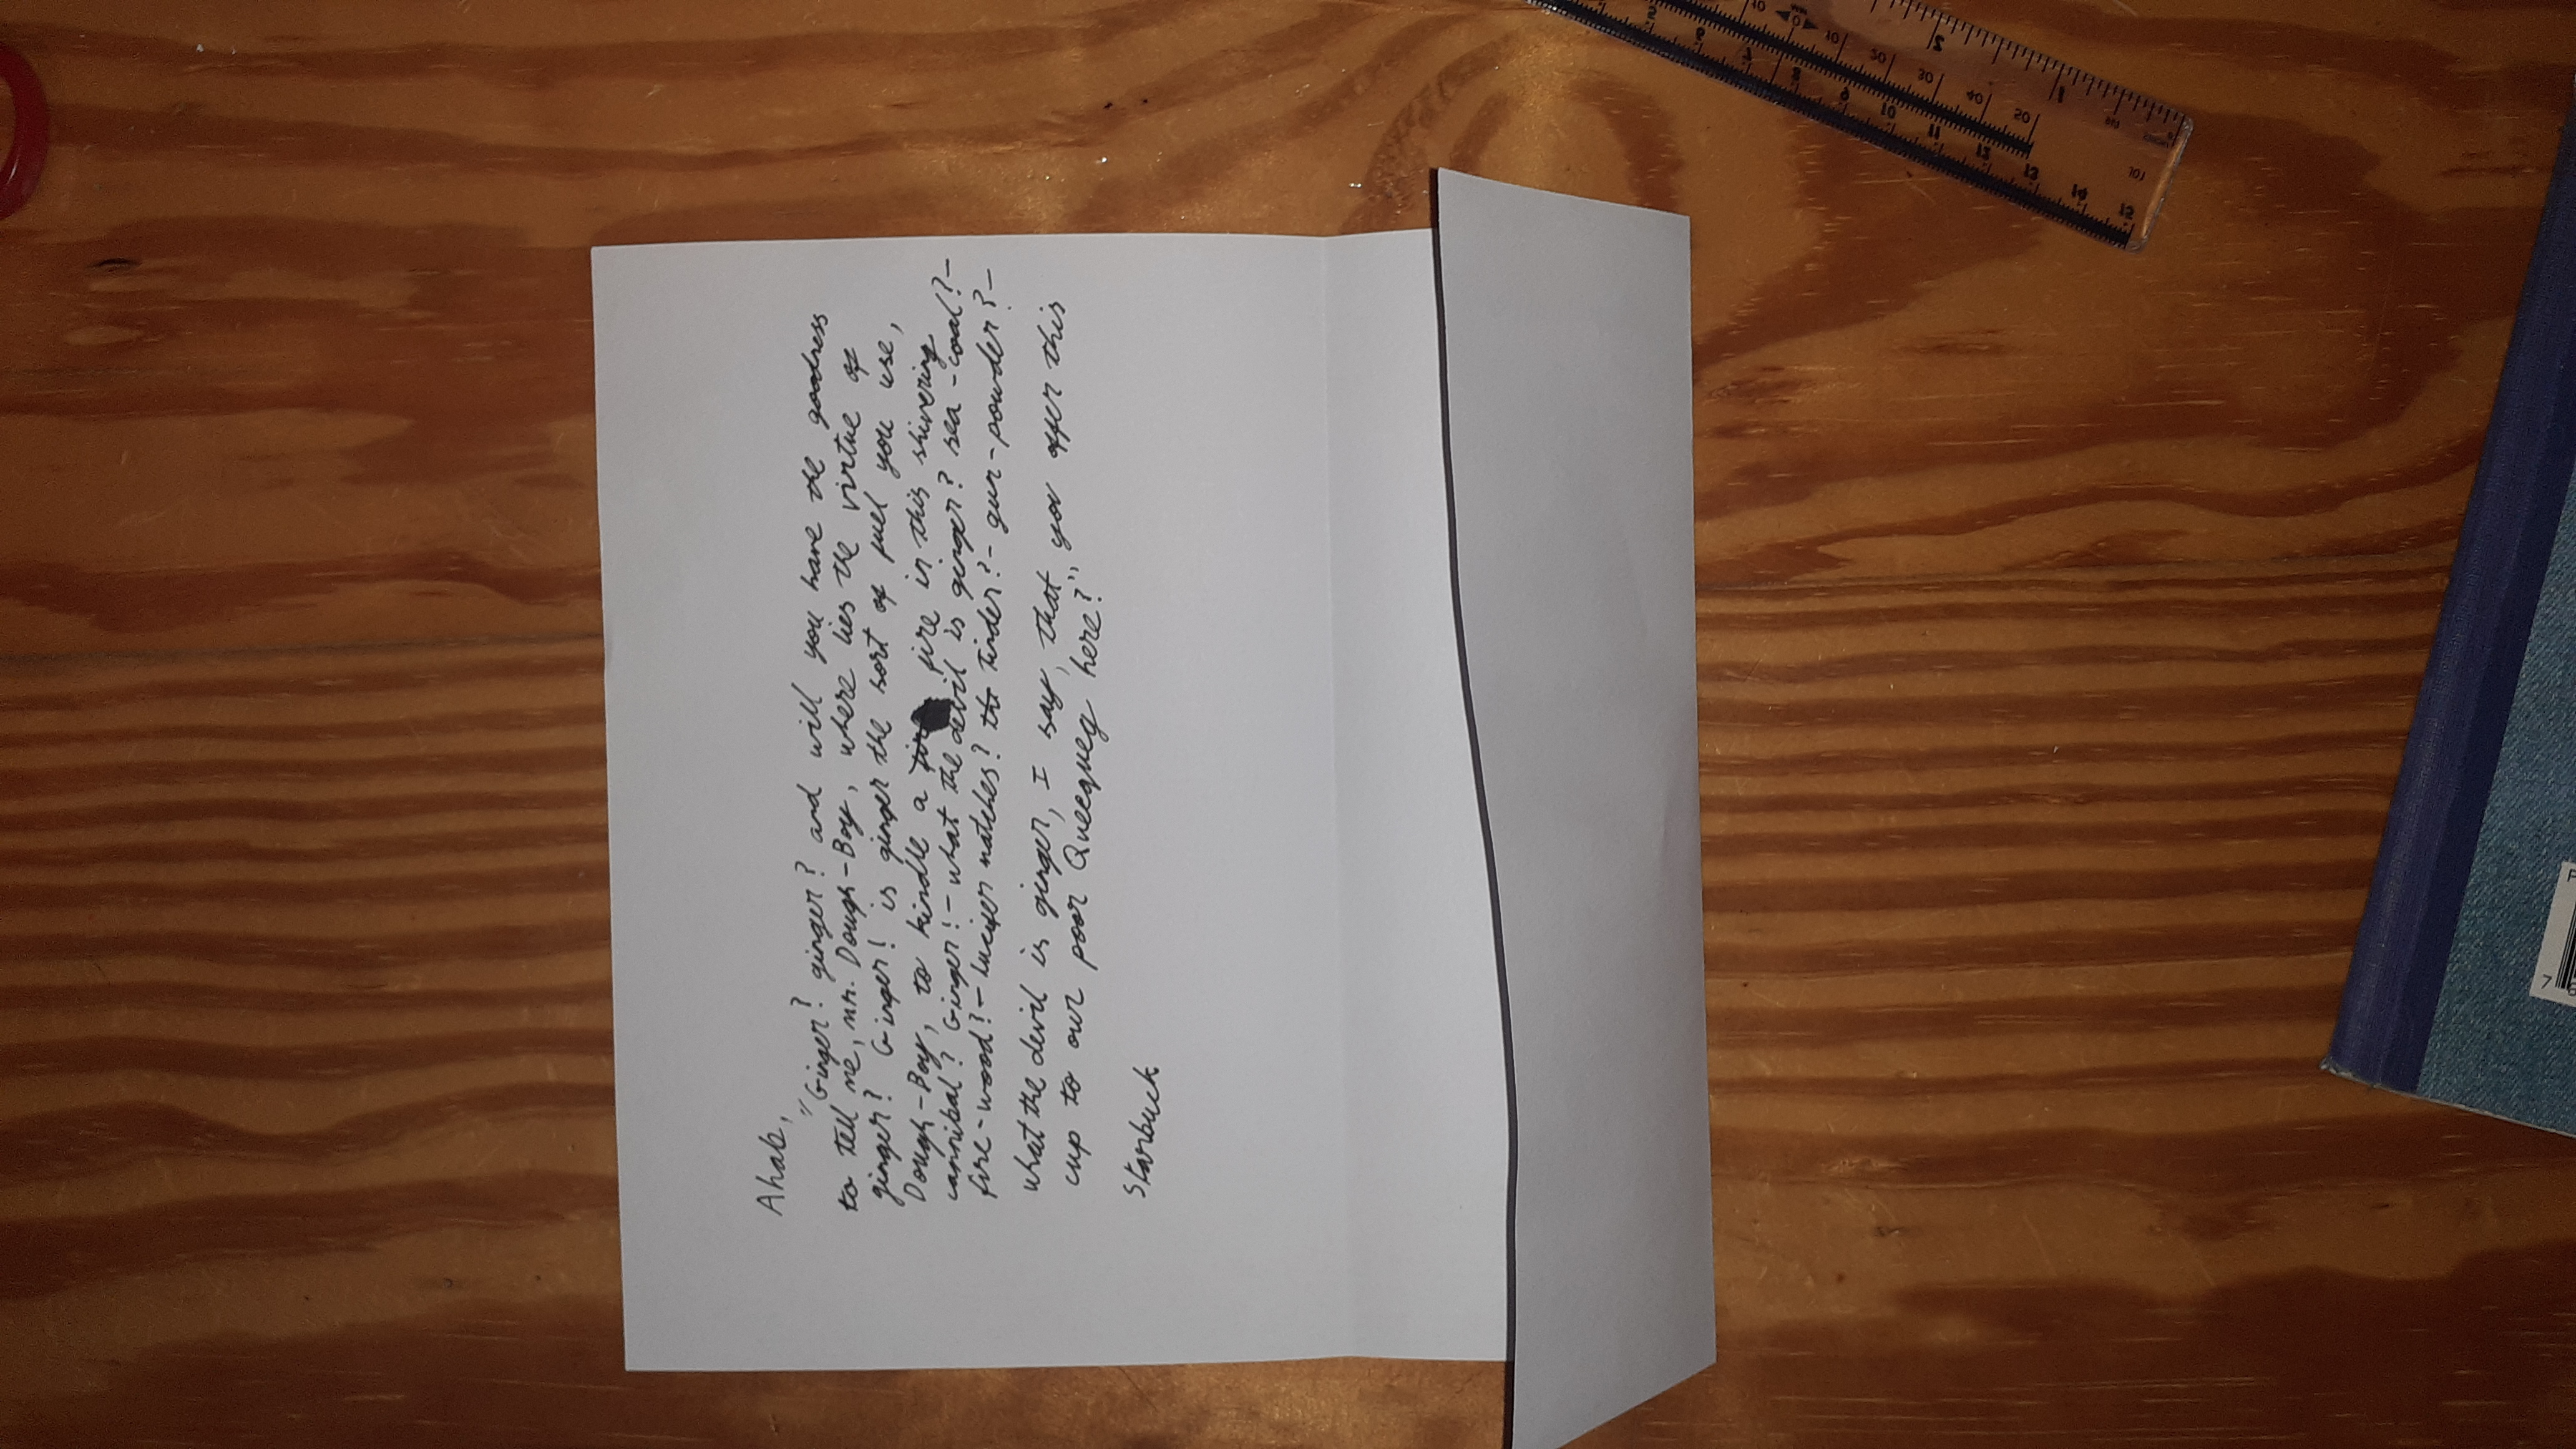 Ahab,
"Ginger? ginger? and will you have the goodness
to tell me, Mr. Dough-Boy, where lies the virtue of
ginger? Ginger! is ginger the sort of fuel you use,
Dough-Boy, to kindle a fire in this shivering
cannibal? Ginger!- what the devil is ginger? sea-coal?-
fire-wood?- lucifer matches? tinder?- gun-powder?-
what the devil is ginger, I say, that you offer this
cup to our poor Queequeg here?"
Starbuck
10 20 30 40 50
2 1
8 9 10 11 12 13 14 15
7